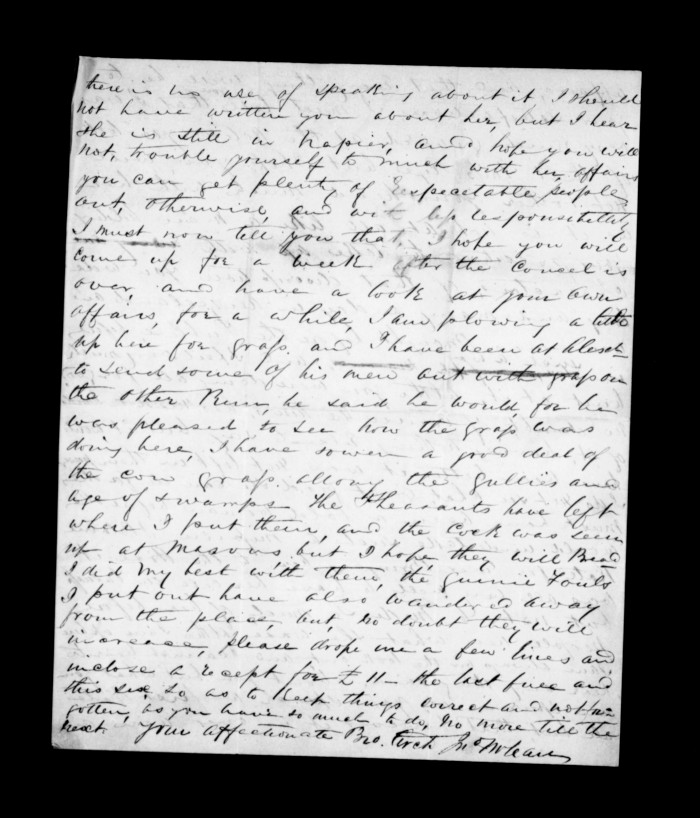 there is no use of speaking about it I should
not have written you about her, but I hear
she is still in Napier, and hope you will
not, trouble yourself to much with her affairs
you can get plenty of respectable people
out, otherwise, and responsibility
I must now tell you that, I hope you will
come up for a week after the Councel is
over, and have a look at your own
affairs, for a while, I am plowing a little
up here for grass. and I have been at Alesc
to send some of his men out with grass on
the other Run, he said he would, for he
was pleased to see how the grass was
doing here, I have sowen a good deal of
the cow grass along the Gullies and
age of swamps The Pheasants have left
where I put them, and the Cock was seen
up at Masons but I hope they will Breed
I did my best with them, the guinie Fouls
I put out have also wander'd away
from the place, but, no doubt they will
increase, please drope me a few lines and
inclose a recept for £11- the last five and
this six, so as to keep things correct and not for-
gotten, as you have so much to do, No more till the
next. Your affectionate Bro. Arch Jn McLean